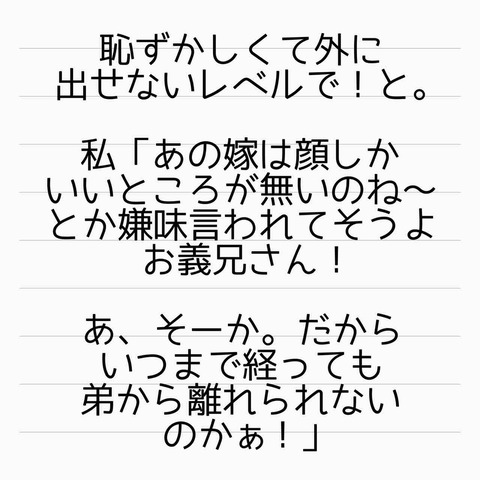 恥ずかしくて外に
出せないレベルで！と。
私「あの嫁は顔しか
いいところが無いのね〜
とか嫌味言われてそうよ
お義兄さん！
あ、そーか。だから
いつまで経っても
弟から離れられない
のかぁ！」